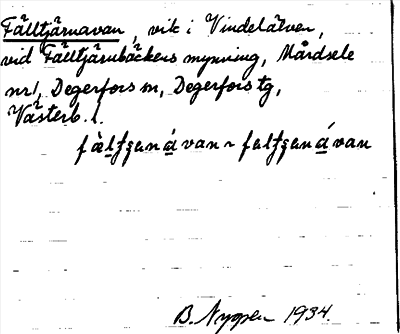 Fälltjärnavan, vik i Vindelälven,
vid Fälltjärnbäckens mynning, Mårdsele
nr 1, Degerfors sn, Degerfors tg,
Västerb. l.
B. Nygren 1934.